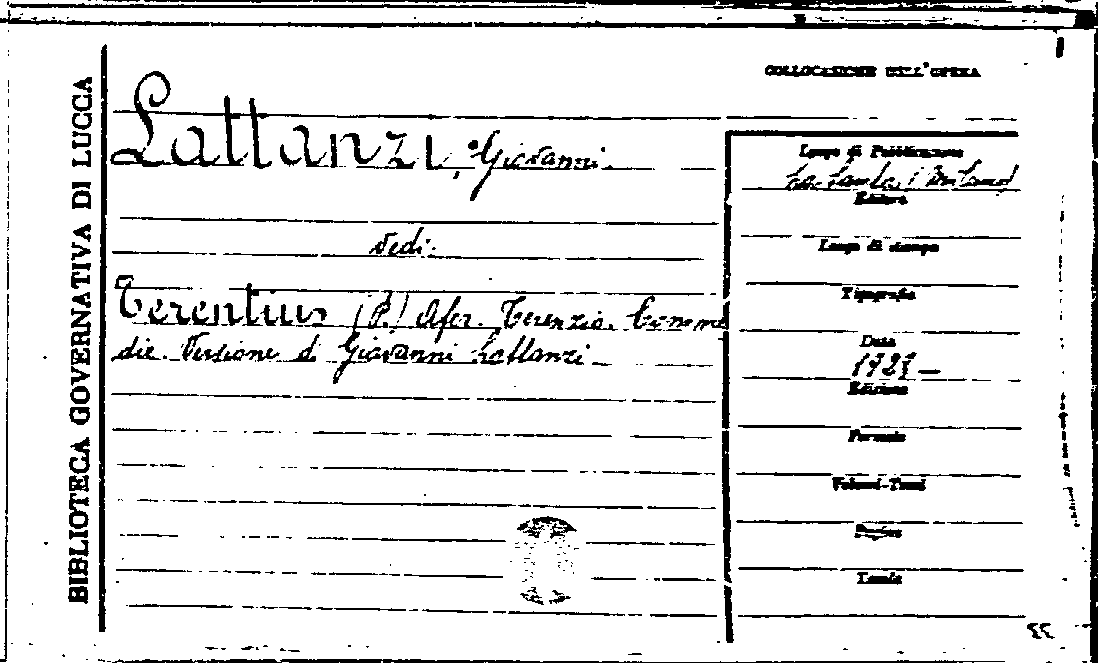 BIBLIOTECA GOVERNATIVA DI LUCCA
COLLOCAZIONE DELL'OPERA
Lattanzi, Giovanni.
Vedi:
Terentius (P.) Afer. Terenzio. Comme
die. Versione d. Giovanni Lattanzi
Luogo di Pubblicazione
Editore
Luogo di stampa
Tipografia
Data
Edizione
Formato
Volumi-Tomi
Pagine
Tavole